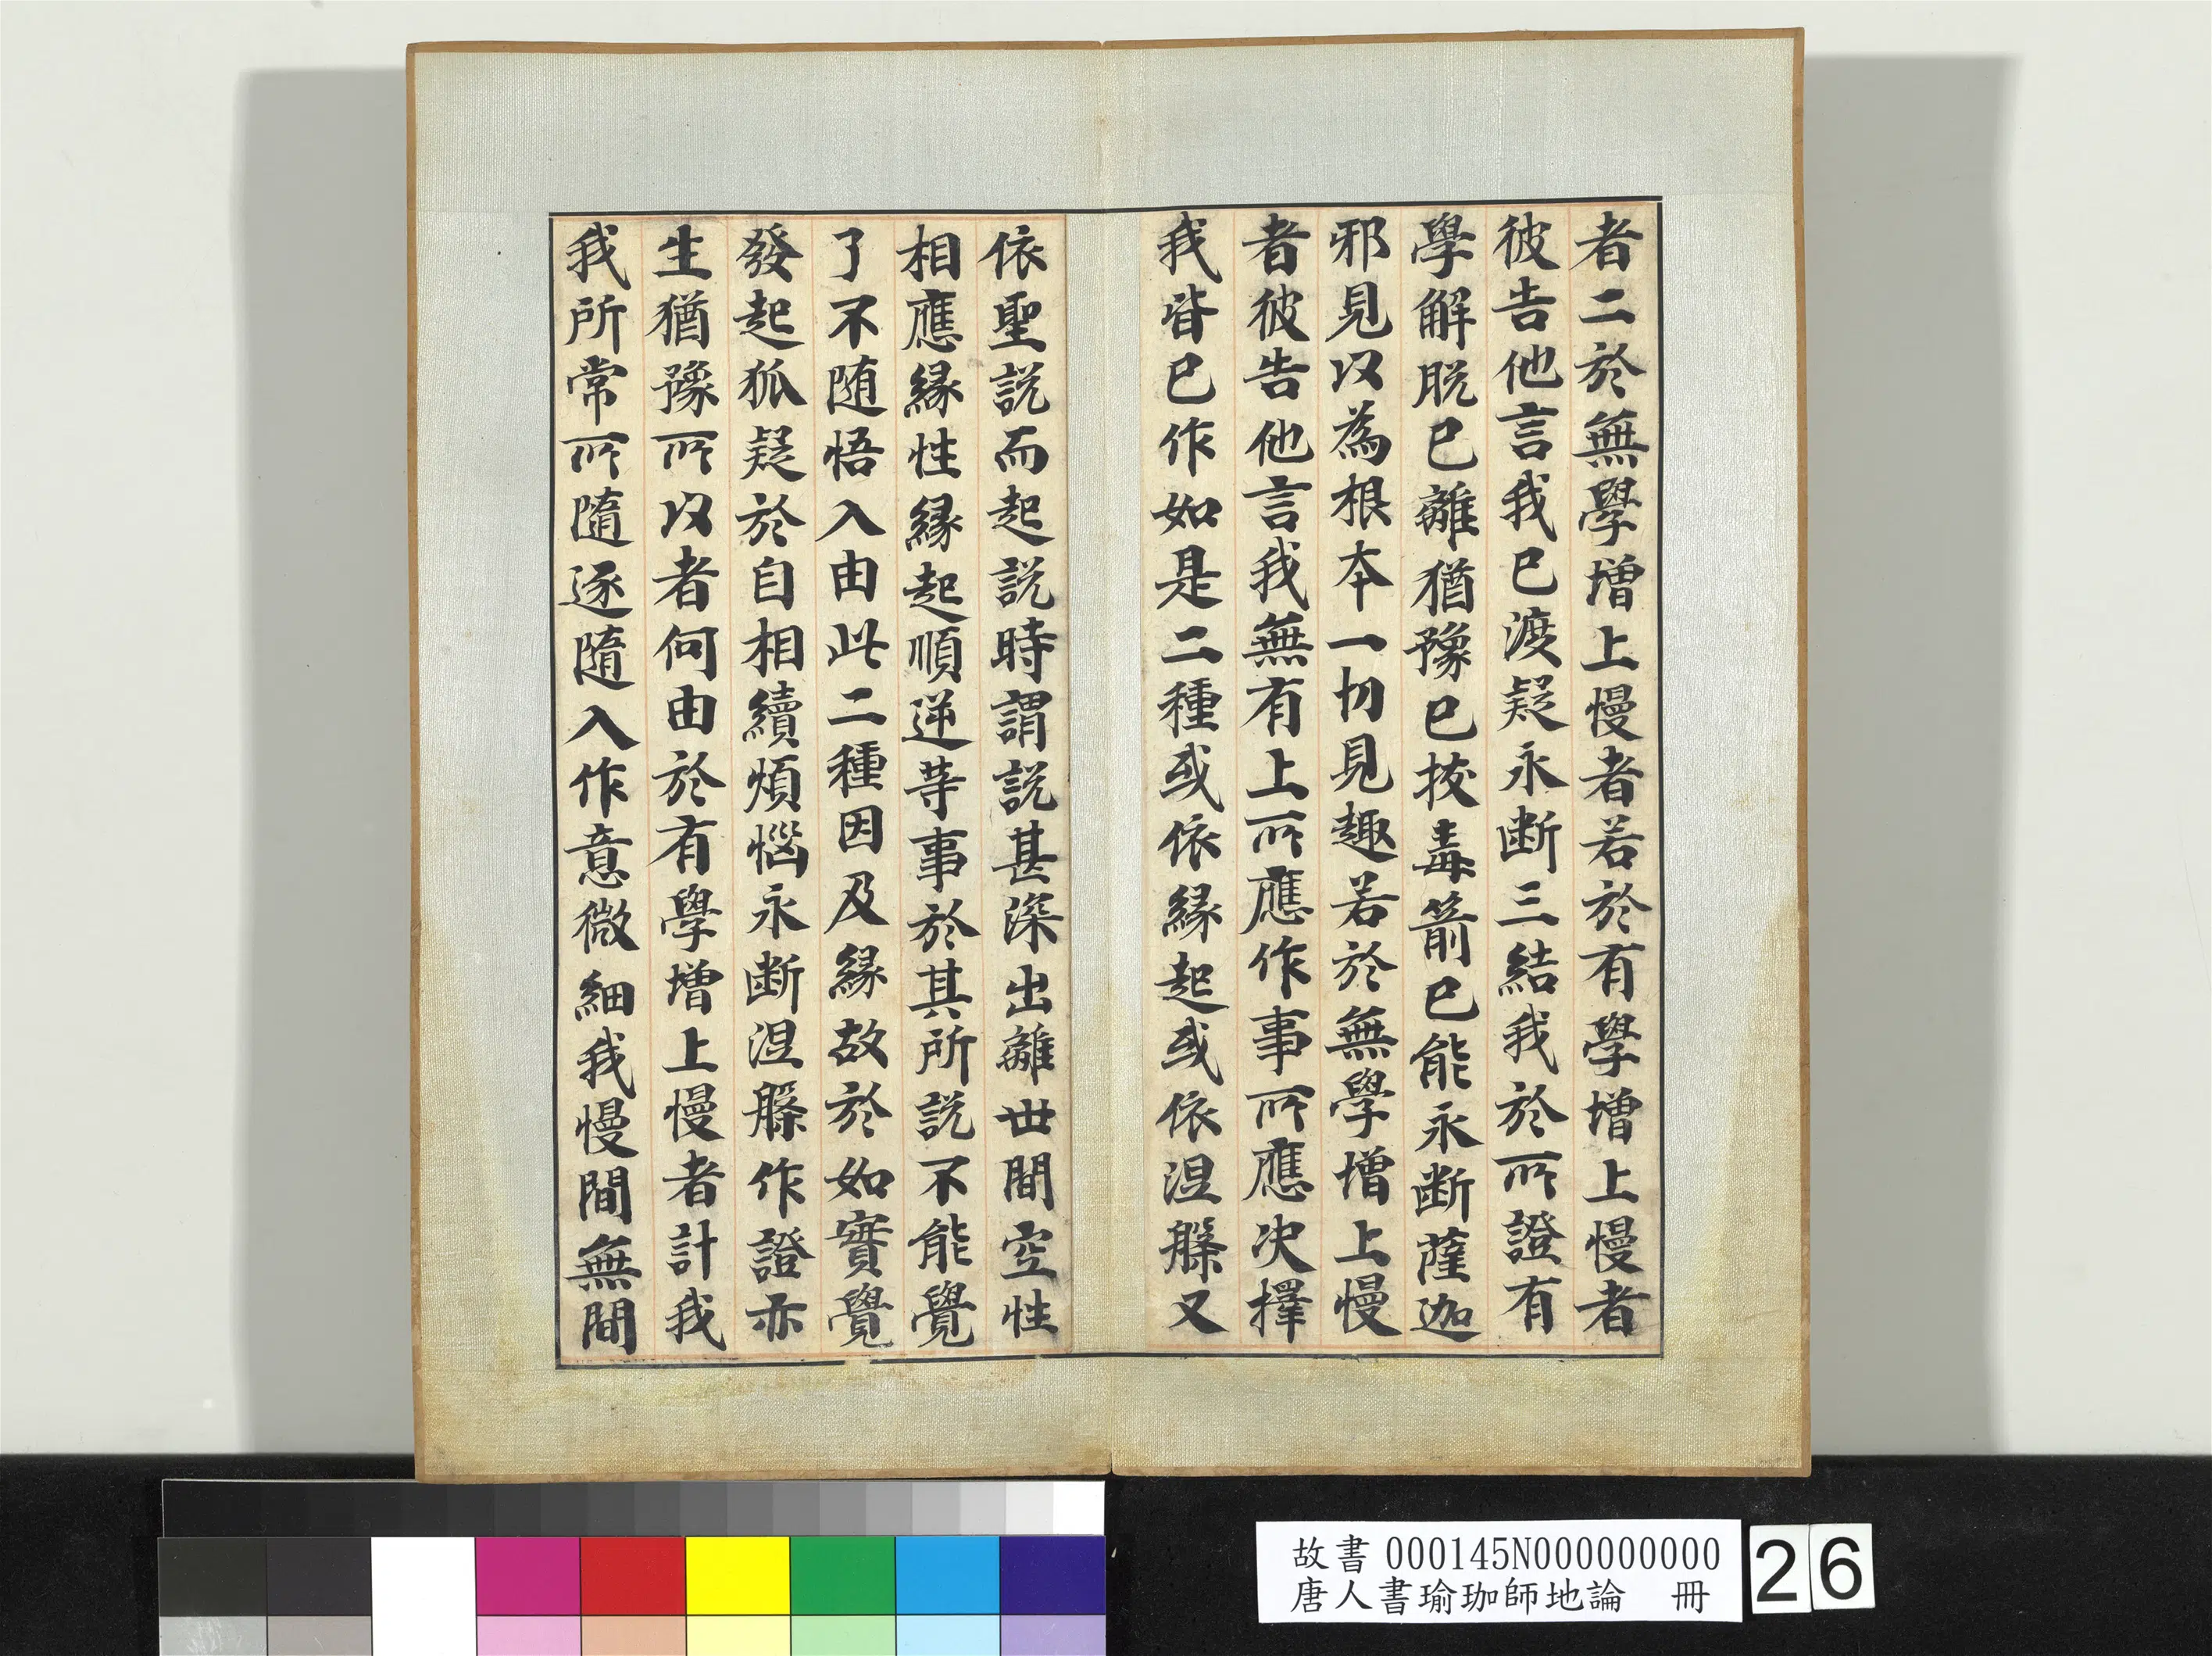 者二於無學增上慢者若於有學增上慢者
彼告他言我已渡疑永断三結我於所證有
學解脱已離猶豫已拔毒箭已能永断薩迦
邪見以為根本一切見趣若於無學增上慢
者彼告他言我無有上所應作事所應决擇
我皆已作如是二種或依緣起或依涅槃又
依聖説而起説時謂説甚深出離世間空性
相應緣性緣起順逆等事於其所説不能覺
了不随悟入由此二種因及緣故於如實覺
發起狐疑於自相續煩惱永断涅槃作證亦
生猶豫所以者何由於有學增上慢者計我
我所常所隨逐隨入作意微細我慢間無間
故書 000145N000000000
唐人書瑜珈師地論 冊
26